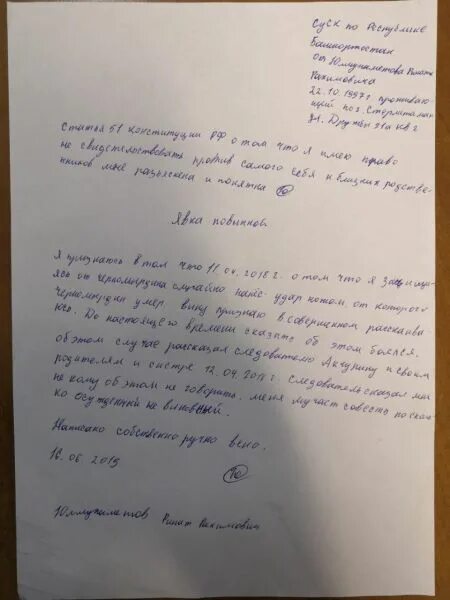 СУСК по Республике
Башкортостан
от Юлмухаметова Рината
Рахимовича
22.10.1997г прожива
ющий по г. Стерлитамак
ул. Дружбы 31а кв 2
Статья 51 конституции РФ о том что я имею право
не свидетельствовать против самого себя и близких родстве-
нников мне разъяснена и понятна Ю
Явка повинной
Я признаюсь в том что 11.04.2018г. о том что я защища
ясь от Черномырдина случайно нанёс удар ножом, от которого
Черномырдин умер, вину признаю в совершенном раскаива
юсь. До настоящего времени сказать об этом боялся.
об этом случае рассказал следователю и своим
родителям и сестре 12.04.2018г. Следователь сказал мне
не кому об этом не говорить. меня мучает совесть поскол
ко осужденный не виновный.
Написано собственно ручно вено.
16.06.2019
Ю
Юлмухаметов Ринат Рахимович